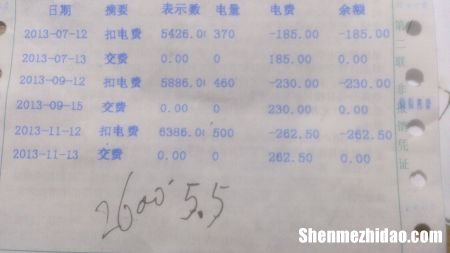 日期 摘要 表示数 电量 电费 余额
2013-07-12 扣电费 5426.0 370 -185.00 -185.00
2013-07-13 交费 0.00 0 185.00 0.00
2013-09-12 扣电费 5886.0 460 -230.00 -230.00
2013-09-15 交费 0.00 0 230.00 0.00
2013-11-12 扣电费 6386.0 500 -262.50 -262.50
2013-11-13 交费 0.00 0 262.50 0.00
2600 5.5
第二联
凭证
Shenmezhidao.com